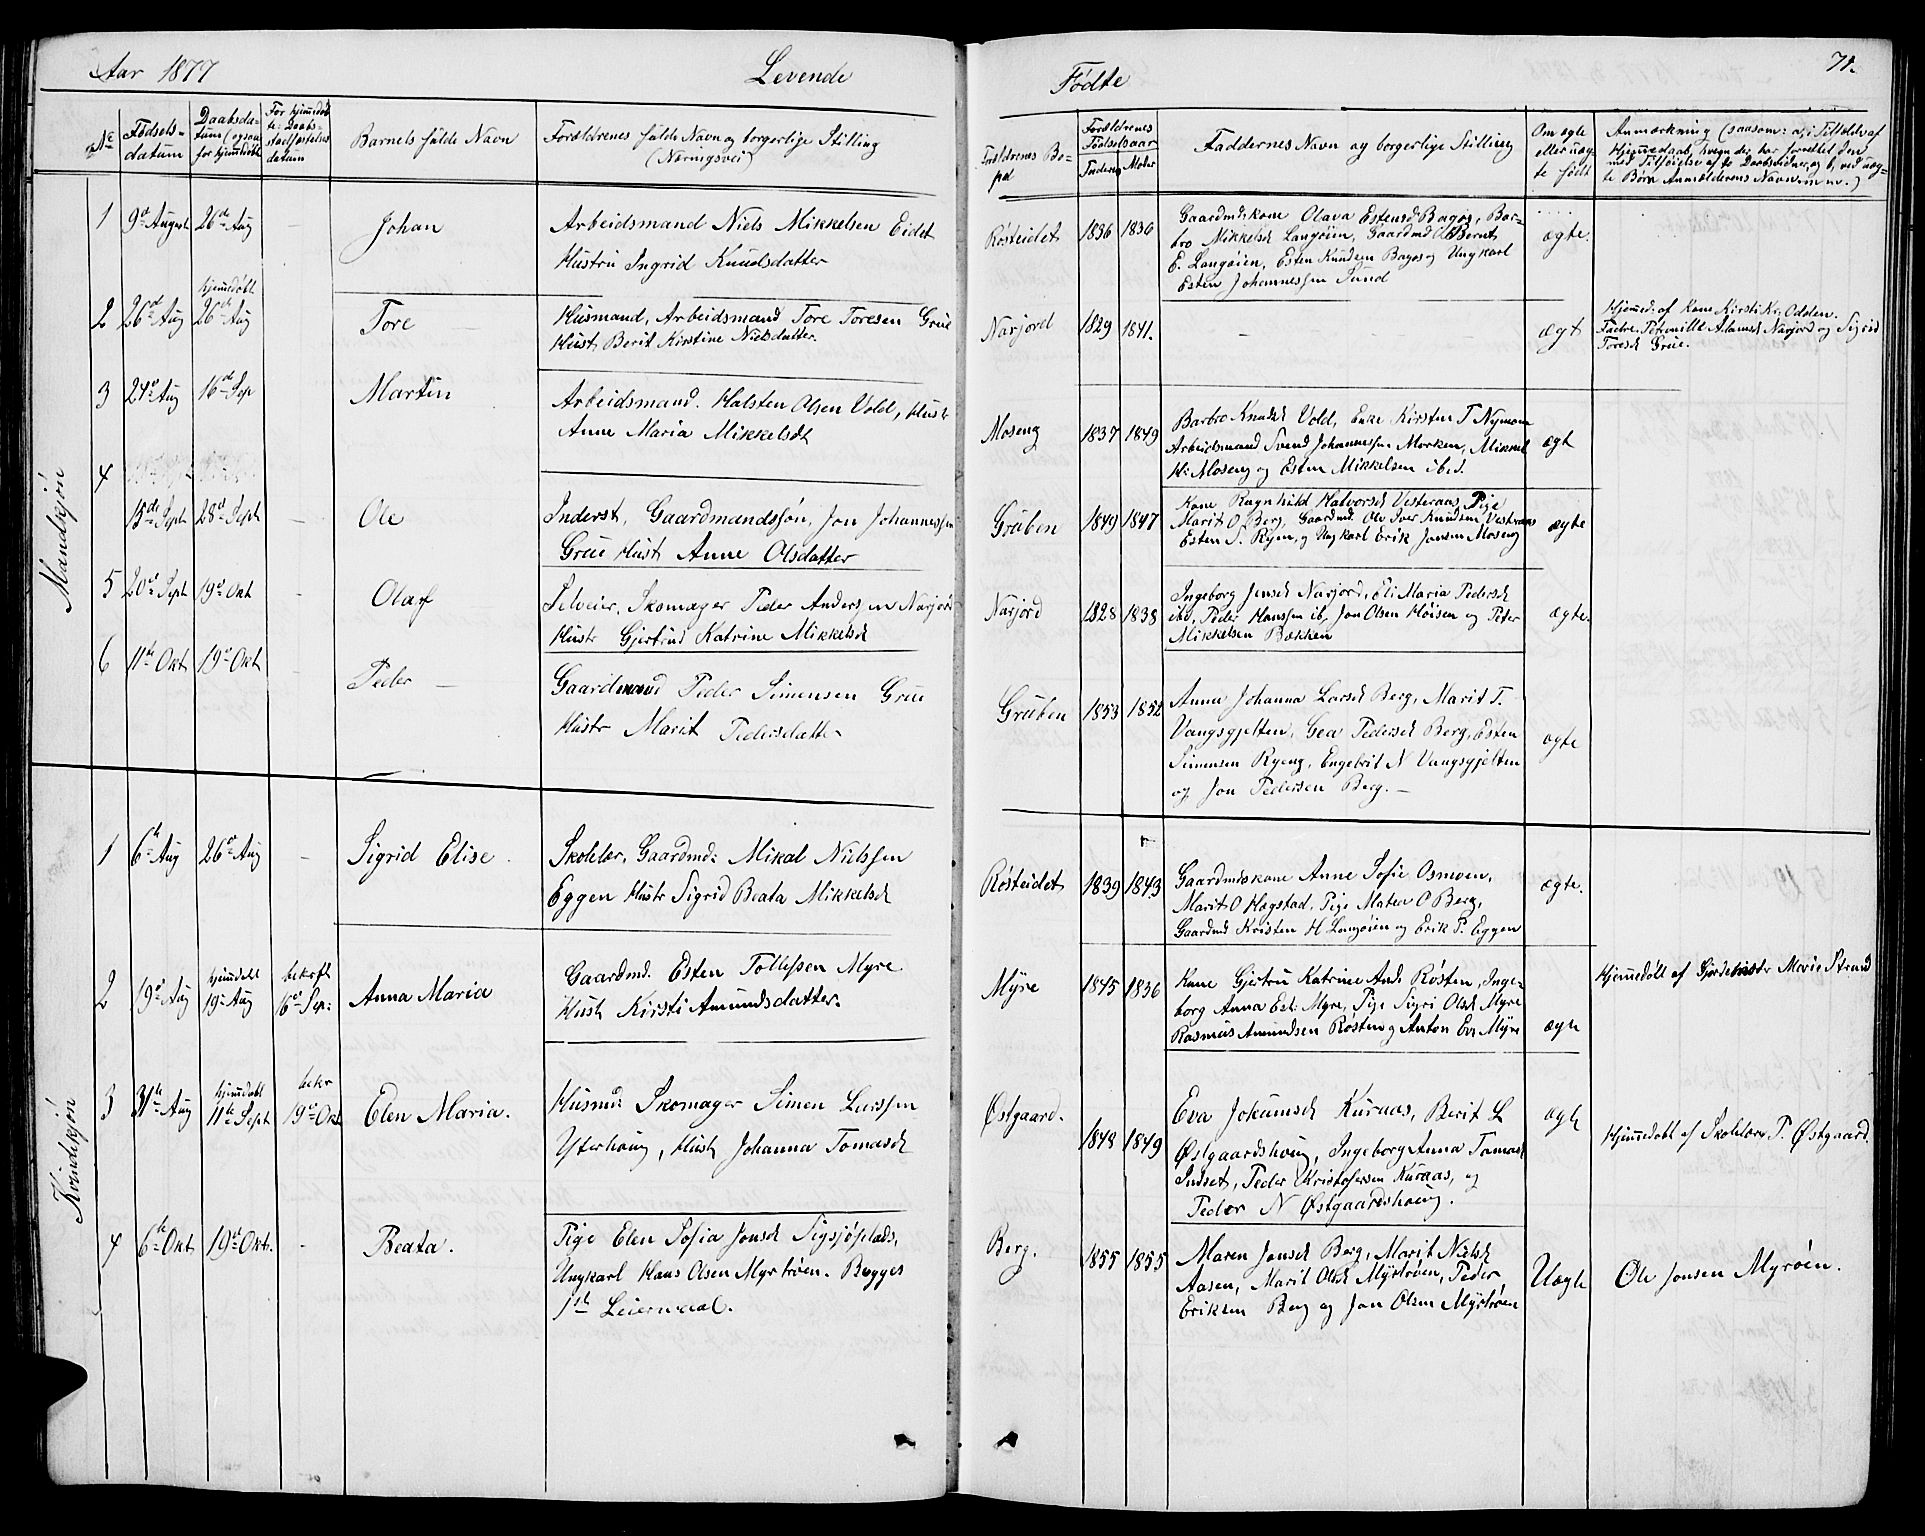 Aar 1877 Levende
Fødte 71.
No
Fødsels-
datum
Daabsda-
tum (ogsaa
for hjemmedøbte
For hjemmedøb-
te: Daabs-
stadfæstelses
datum
Barnets fulde Navn
Forældrenes fulde Navn og borgerlige Stilling
(Næringsvei)
Forældrenes Bo-
pæl
Forældrenes
Fødselsaar
Faderens Moder
Faddernes Navn og borgerlige Stilling
Om ægte
eller uæg-
te født
Anmærkning (saasom: a, i Tilfælde af
Hjemmedaab, hvem der har forrettet den
med Tilføielse af to Daabsvidner, og b, ved uæg-
te Børn Anmelderens Navn m. m.)
Mandkjøn
1 9de August 26de Aug - Johan
Arbeidsmand Niels Mikkelsen Eidet
Hustru Ingrid Knudsdatter
Røsteidet 1836 1830
Gaardmdskone Olava Estensd Bagøs, Bar-
bro Mikkelsd Langøien, Gaardmd Ole Bernt
E. Langøien, Esten Knudsen Bagøs og Ungkarl
Esten Johannessen Sund
ægte.
2 26de Aug hjemmedøbt
26de Aug
Tore -
Husmand, Arbeidsmand Tore Toresen Grue
Hust. Berit Kirstine Nielsdatter.
Narjord 1829 1841. - ægt
Hjemmed: af Kone Kirsti Kr. Odden.
Faddre. Petronille Adamsd Narjord og Sigrid
Toresd Grue.
3 24de Aug 16de Sep Martin
Arbeidsmand. Halsten Olsen Vold, Hust
Anne Maria Mikkelsdt
Moseng 1837 1849
Barbro Knudsd Vold, Enke Kirsten T Nymoen
Arbeidsmand Svend Johannessen Morken, Mikkel
H: Moseng og Esten Mikkelsen ibd.
ægt
4
15de Sept 28de Sept - Ole
Inderst, Gaardmandssøn, Jon Johannessen
Grue Hust Anne Olsdatter
Gruben 1849 1847
Kone Ragnhild Halvorsd Vesteraas, Pige
Marit O Berg, Gaardmd. Ole Iver Knudsen Vesteraas
Esten S. Ryen, og Ungkarl Erik Jonsen Moseng
ægte
5 20de Sept 19de Okt - Olaf
Selveier, Skomager Peder Andersen Narjord
Hustr Gjertrud Katrine Mikkelsd
Narjord 1828 1838
Ingeborg Jensd Narjord, Eli Maria Pedersd
ibd, Peder Hanssen ib, Jon Olsen Høisen og Peter
Mikkelsen Bækken
ægte.
6 11te Okt 19de Okt - Peder -
Gaardmand Peder Simensen Grue
Hustr Marit Pedersdatte-
Gruben 1853 1852
Anne Johanna Larsd Berg, Marit T.
Vangsgjelten, Gea Pedersd Berg, Esten
Simensen Ryeng, Engebrit N Vangsgjelten
og Jon Pedersen Berg. -
ægte
Kvindekjøn
1 6te Aug 26de Aug - Sigrid Elise.
Skolelær, Gaardmd: Mikal Nielssen
Eggen Hustr Sigrid Beata Mikkelsd
Røsteidet 1839 1843
Gaardmdskone Anne Sofie Osmoen,
Marit O Hogstad, Pige Maten O Berg,
Gaardmd Kristen H Langøien og Erik P. Eggen
ægte.
2 19de Aug hjemmedøbt
19de Aug
bekrft
16de Sep:
Anna Maria
Gaardmd. Esten Tollefsen Myre
Hust Kirsti Amundsdatter.
Myre 1845 1836
Kone Gjertru Katrine And Røsten, Inge-
borg Anna Est. Myre, Pige Sigri Olsd Myre
Rasmus Amundsen Røsten og Anton Ev. Myre
ægte
Hjemmedøbt af Gjordehustr Marie Strand
3 31te Aug hjemmedøbt
11te Sept
bekr
19de Okt
Elen Maria.
Husmd: Skomager Simen Larssen
Ytterhaug, Hust Johanna Tomasd
Østgaard. 1848 1849
Eva Jokumsd Kuraas, Berit L
Østgaardshoug, Ingeborg Anna Tomasd
Indset, Peder Kristofersen Kuraas, og
Peder N Østgaardshaug.
ægte
Hjemmedøbt af Skolelærer P. Østgaard.
4 6te Okt 19de Okt. - Beata.
Pige Elen Sofia Jonsd Sigsjøplads,
Ungkarl Hans Olsen Myrtrøen. Begges
1ste Leiermaal.
Berg. 1855 1855
Maren Jensd Berg, Marit Nielsd
Aasen, Marit Olsd Myrtrøen, Peder
Eriksen Berg og Jon Olsen Myrtrøen
Uægte
Ole Jonsen Myrøen.